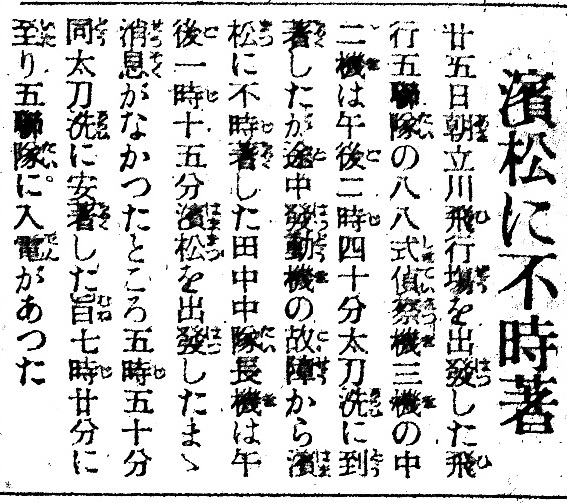 濱松に不時著
廿五日朝立川飛行場を出發した飛
行五聯隊の八八式偵察機三機の中
二機は午後二時四十分太刀洗に到
著したが途中發動機の故障から濱
松に不時著した田中中隊長機は午
後一時十五分濱松を出發したまゝ
消息がなかつたところ五時五十分
同太刀洗に安著した旨七時廿分に
至り五聯隊に入電があつた